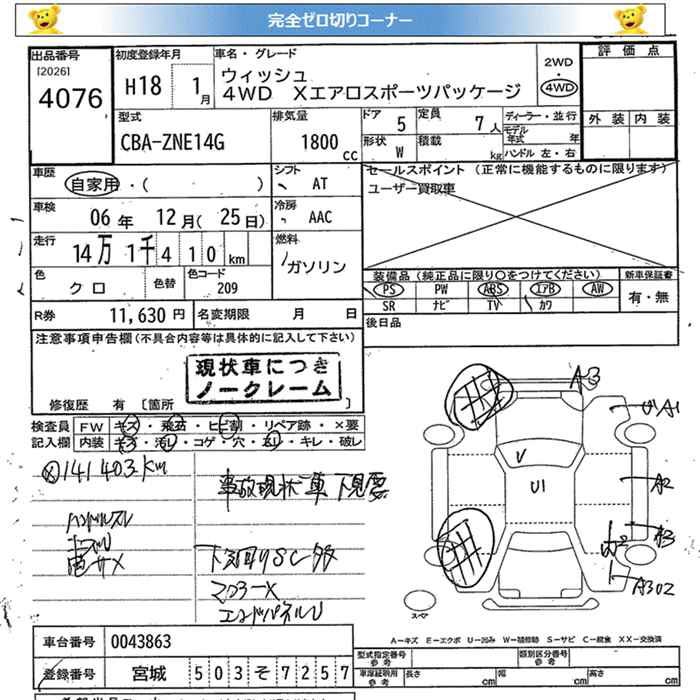 完全ゼロ切りコーナー
出品番号
[2026]
4076
初度登録年月
H18 1月
車名・グレード
ウィッシュ
4WD Xエアロスポーツパッケージ
2WD
4WD
評価点
外装 内装
型式
CBA-ZNE14G
排気量
1800 cc
ドア 5
定員 7人
形状 W
積載 kg
ディーラー・並行
モデル年式 年
ハンドル 左・右
車歴
自家用・( )
シフト
AT
セールスポイント (正常に機能するものに限ります)
ユーザー買取車
車検
06年 12月(25日)
冷房
AAC
走行
14万 1千 4 1 0 km
燃料
ガソリン
色
クロ
色替
色コード
209
装備品 (純正品に限り○をつけてください)
PS PW ABS エアB AW
SR ナビ TV カワ
新車保証書
有・無
R券 11,630 円
名変期限 月 日
後日品
注意事項申告欄(不具合内容等は具体的に記入して下さい)
現状車につき
ノークレーム
修復歴 有 [箇所 ]
検査員 FW キズ・飛石・ヒビ割・リペア跡・×要
記入欄 内装 キズ・汚レ・コゲ・穴・ヌレ・キレ・破レ
141403km
事故現状車 下見要
A3
A1
U1
A2
A3
スペア
A-キズ E-エクボ U-凹み W-補修跡 S-サビ C-腐食 XX-交換済
車台番号 0043863
登録番号 宮城 503そ7257
型式指定番号 参考
類別区分番号 参考
車庫証明用 参考
長さ cm
幅 cm
高さ cm